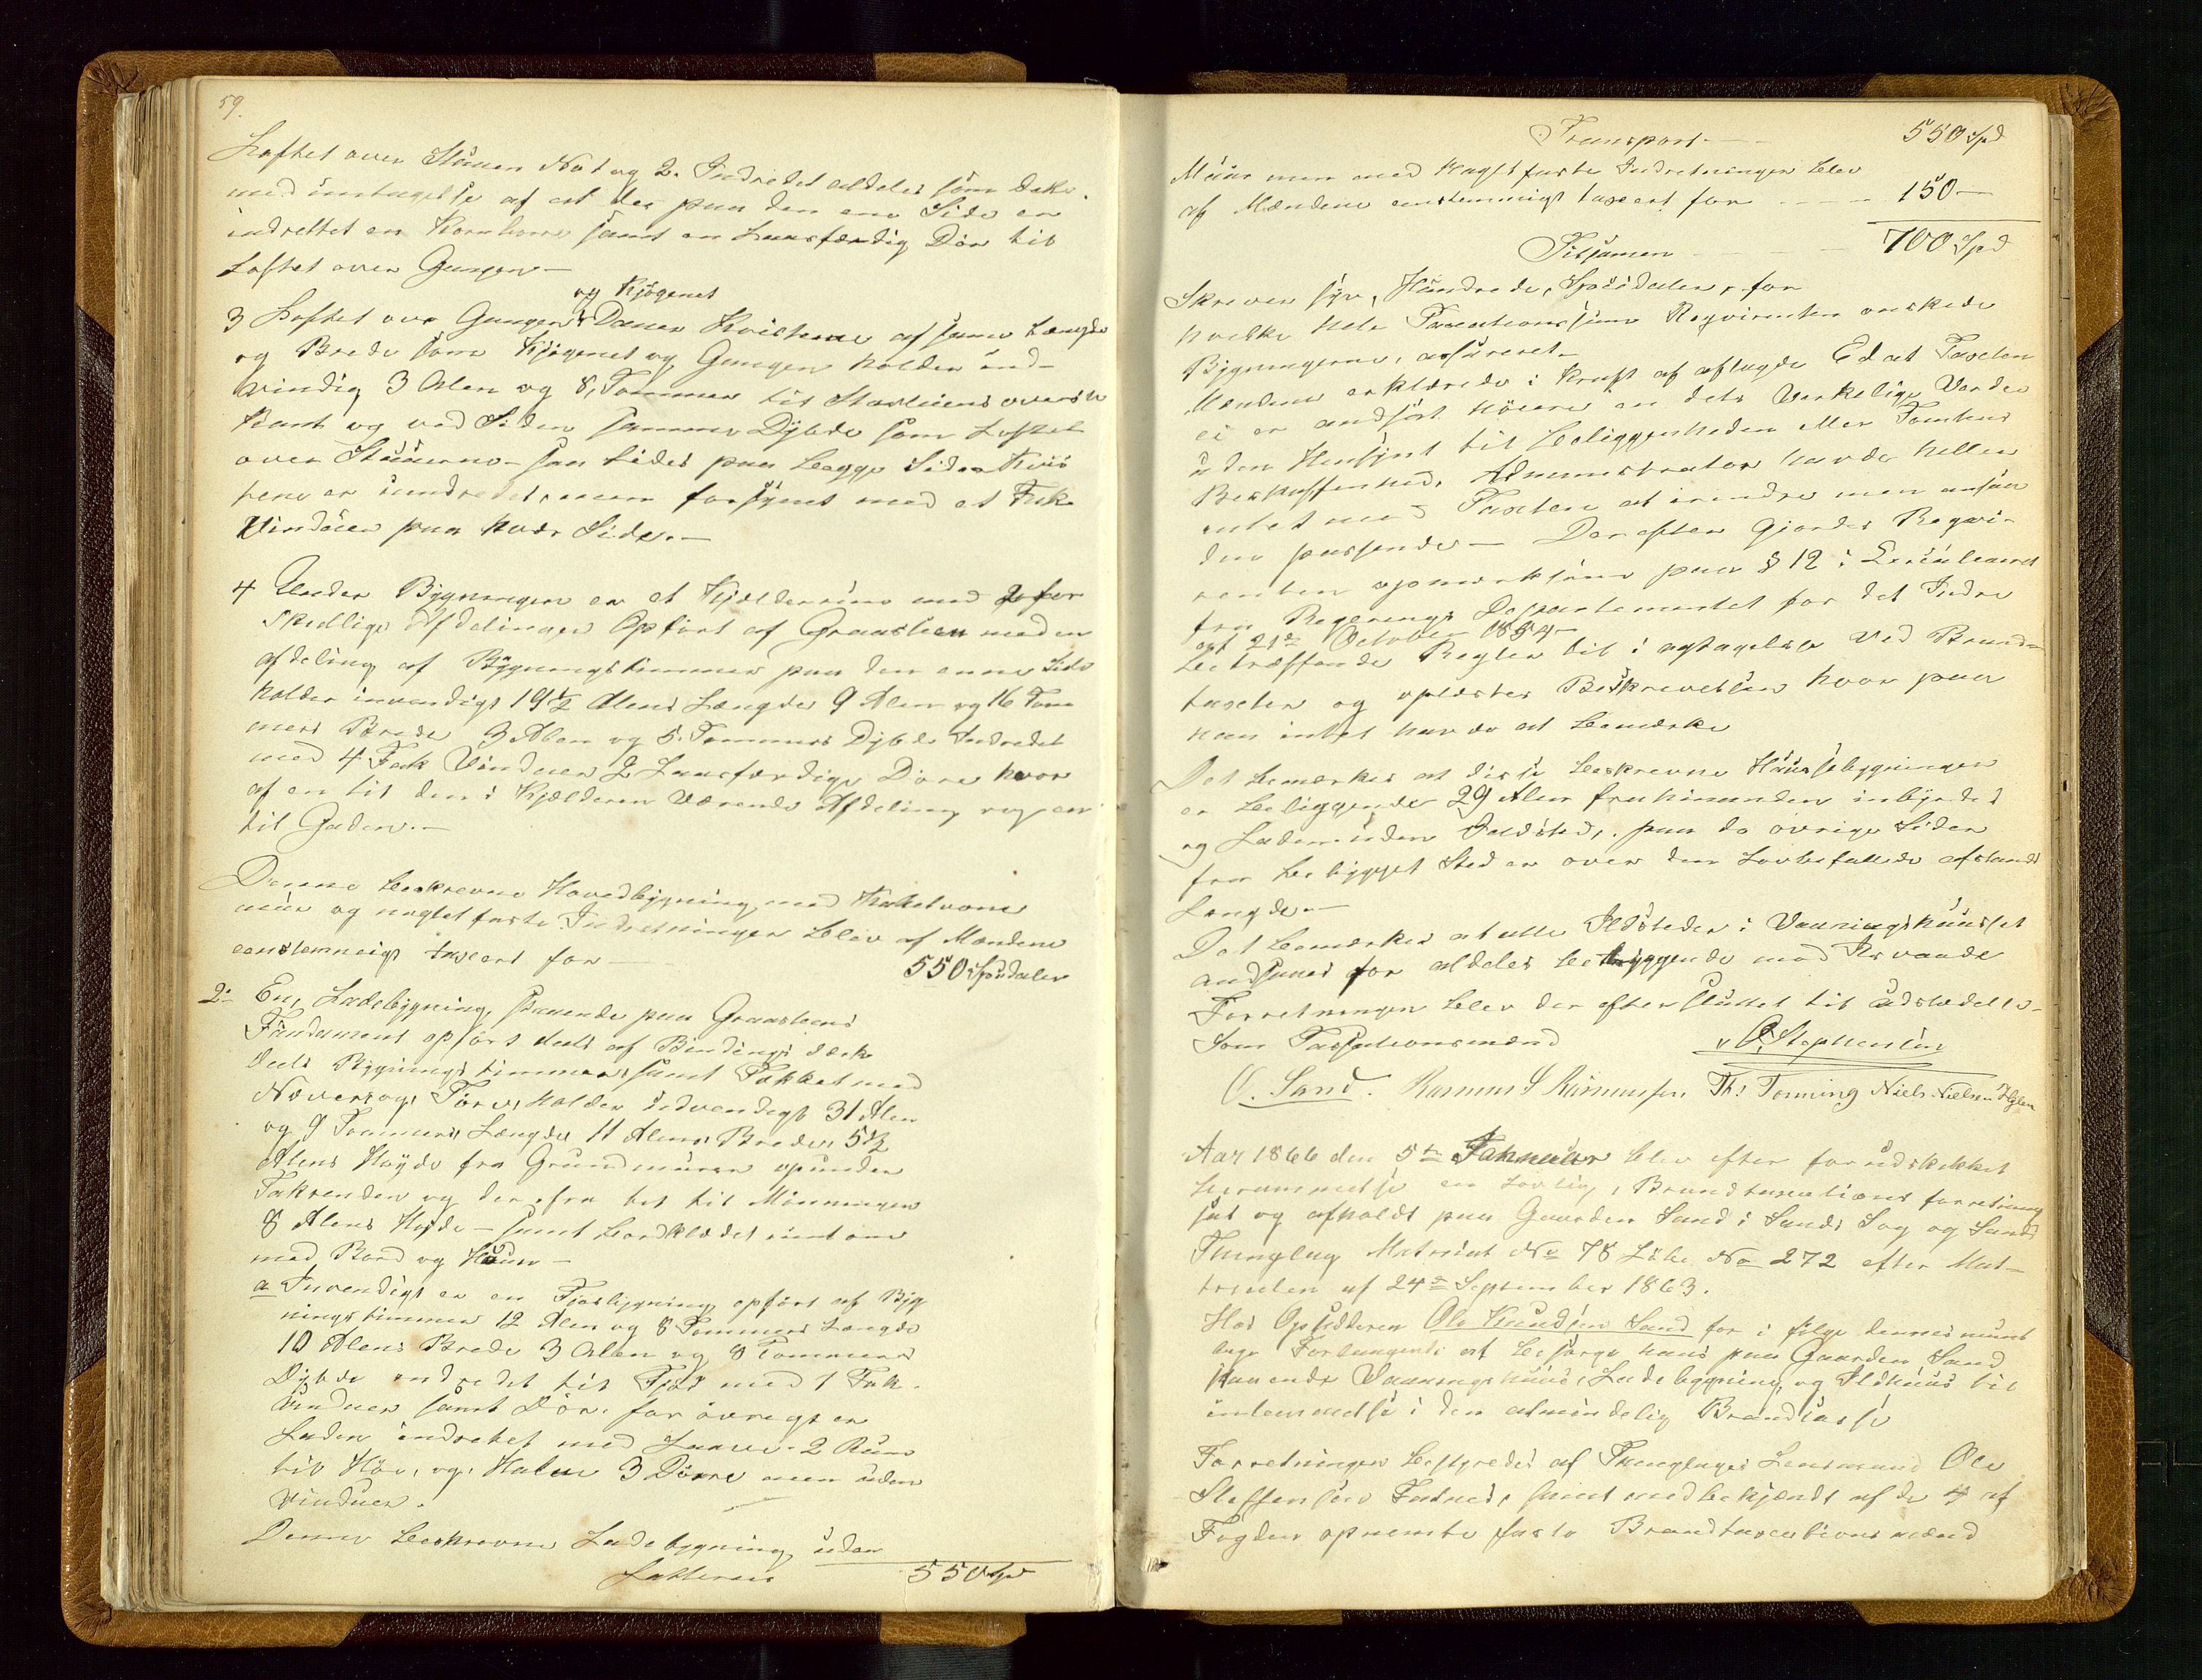 59.
Loftet over Stuen No 1 og 2. Indredet aldeles som dette
med undtagelse af at der paa den ene Side er
indrettet en Kornbore samt en Laasfærdig Dør til
Loftet over Gangen —
og Kjøgenet
3 Loftet over Gangen Danner Kvistene af samme Længde
og Brede som Kjøgenet og Gangen holder ind-
vindig 3 Alen og 8, Tommer til Stavlinens øverste
Kant og ved Siden samme Dybde som Loftet
over Stuerne — saa ledes paa begge Sider Kvis
tene er uindredet, men forsynet med et Fak
Vinduer paa hver Side. —
4 Under Bygningen er et Kjælderrum med 2 for
skjellige Afdelinger Opført af Graasteen med en
afdeling af Bygningstimmer paa den enne Side
holder invendigt 19½ Alens Længde 9 Alen og 16 Tom
mers Brede 3 Alen og 5 Tommers Dybde Indredet
med 4 Fak Vinduer 2 Laasfærdige Døre hvor
af en til den i Kjælderen Værende Afdeling og en
til Gaden. —
Denne beskrevne Hovedbygning med Kakelovne
mur og nagletfaste Indretninger blev af Mændene
eenstemmigt taxeret for — 550 Spddaler
2- En, Ladebygning, staaende paa Graasteens
Fundament opført deels af Bindings værk
deels Bygnings timmer, samt Takket med
Never og Torv, holder udvendigt 31 Alen
og 9 Tommers Længde 11 Alens Brede, 5½
Alens Høyde fra Grundmuren opunder
Takrenden og der fra til Mønningen
8 Alens Høyde — samt bordklædet rundt om
med Bord og
a Invendigt er en Fjøsbygning opført af Byg
nings timmer 12 Alen og 8 Tommers Længde
10 Alens Brede 3 Alen og 8 Tommers
Dybde indredet til Fjøs med 1 Fak.
Vinduer samt Dør. for øvrigt er
Laden indredet med Laave. 2 Rum
til Høe, og, Halm 3 Døre men uden
Vinduer.
Denne beskrevne Ladebygning uden
Latteres 550 Spd
Transport — 550 Spd
Muur men med Nagletfaste Indretninger blev
af Mændene enstemmigt taxeert for — 150 —
Tilsamen — 700 Spd
Skriver syv, Hundrede, Speciedaler, for
hvilke hele Taxationssum Reqvirenten ønskede
Bygningerne, assureret —
Mændene erklærede i Kraft af aflagde Ed at Taxten
ei er andsat høiere en dets Verkelige Værdie
uden Hensynt til beliggenheden eller Tomtens
Beskaffenhed. Administrator havde heller
intet mod Taxten at erindre men ansaa
den passende — Derefter gjordes Reqvi-
renten opmærksom paa § 12 i Circulairet
fra Regjerings Departementet for det Indre
af 21de October 1854 —
betræffende Regler til i agtagelse ved Brand-
taxter og oplæstes Beskrivelsen hvor paa
han intet havde at bemærke
Det bemærkes at disse beskrevne Huusebygninger
er beliggende 29 Alen fra hinanden inbyrdes
og Laden uden Ildsted, paa de øvrige Sider
fra bebygget Sted er over den Lovbefallede afstands
Længde. —
Det bemærkes at alle Ildsteder i Vaaningshuuset
andsees for aldeles betryggende mod Ilsvaade
Forretningen blev der efter sluttet til udstedelse —
Som Taxationsmænd O. Stephensen
O. Sand. Rasmus S Rasmussen Th: Torming Niels Nielsen
Aar 1866 den 5te Januar blev efter forudskikket
berammelse en Lovlig, Brandtaxations forretning
sat og afholdt paa Gaarden Sand i Sands Sog og Sands
Thinglag Matricul No 78 Løbe No 272 efter Mat-
triculen af 24de September 1863.
Hos Opsidderen Ole Knudsen Sand for i følge dennes munt
lige Forlangende at besørge hans paa Gaarden Sand
staaende Vaaningshuus, Ladebygning, og Ildhuus til
indlemmelse i den almindelig Brandcasse
Forretningen bestyredes af Thinglagets Lensmand Ole
Steffensen samt medbetjendt af de 4 af
Fogden opnemte faste Brandtaxationsmænd